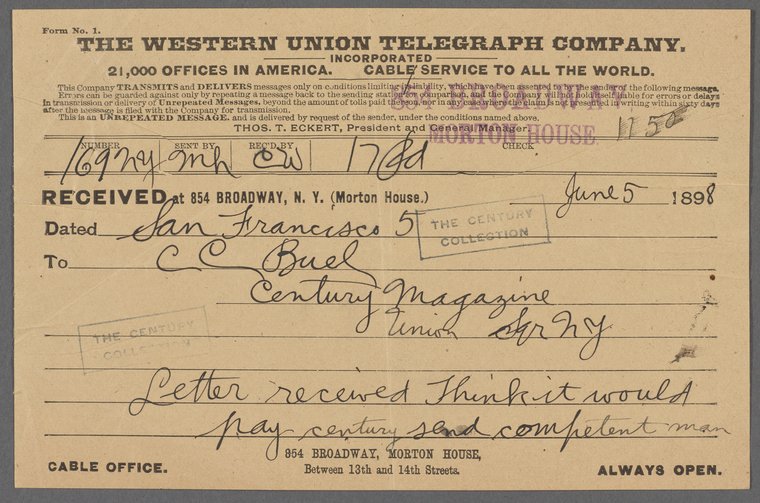 Form No. 1.
THE WESTERN UNION TELEGRAPH COMPANY.
INCORPORATED
21,000 OFFICES IN AMERICA. CABLE SERVICE TO ALL THE WORLD.
This Company TRANSMITS and DELIVERS messages only on conditions limiting its liability, which have been assented to by the sender of the following message.
Errors can be guarded against only by repeating a message back to the sending station for comparison, and the Company will not hold itself liable for errors or delays
in transmission or delivery of Unrepeated Messages, beyond the amount of tolls paid thereon, nor in any case where the claim is not presented in writing within sixty days
after the message is filed with the Company for transmission.
This is an UNREPEATED MESSAGE, and is delivered by request of the sender, under the conditions named above.
THOS. T. ECKERT, President and General Manager.
854 BROADWAY
MORTON HOUSE
NUMBER SENT BY REC'D BY CHECK
169 NY Mh CW 17 Pd
RECEIVED at 854 BROADWAY, N. Y. (Morton House.) June 5 1898
Dated San Francisco 5
THE CENTURY
COLLECTION
To C C Buel
Century Magazine
Union Sqr NY
THE CENTURY
COLLECTION
Letter received Think it would
pay century send competent man
854 BROADWAY, MORTON HOUSE,
Between 13th and 14th Streets.
CABLE OFFICE. ALWAYS OPEN.